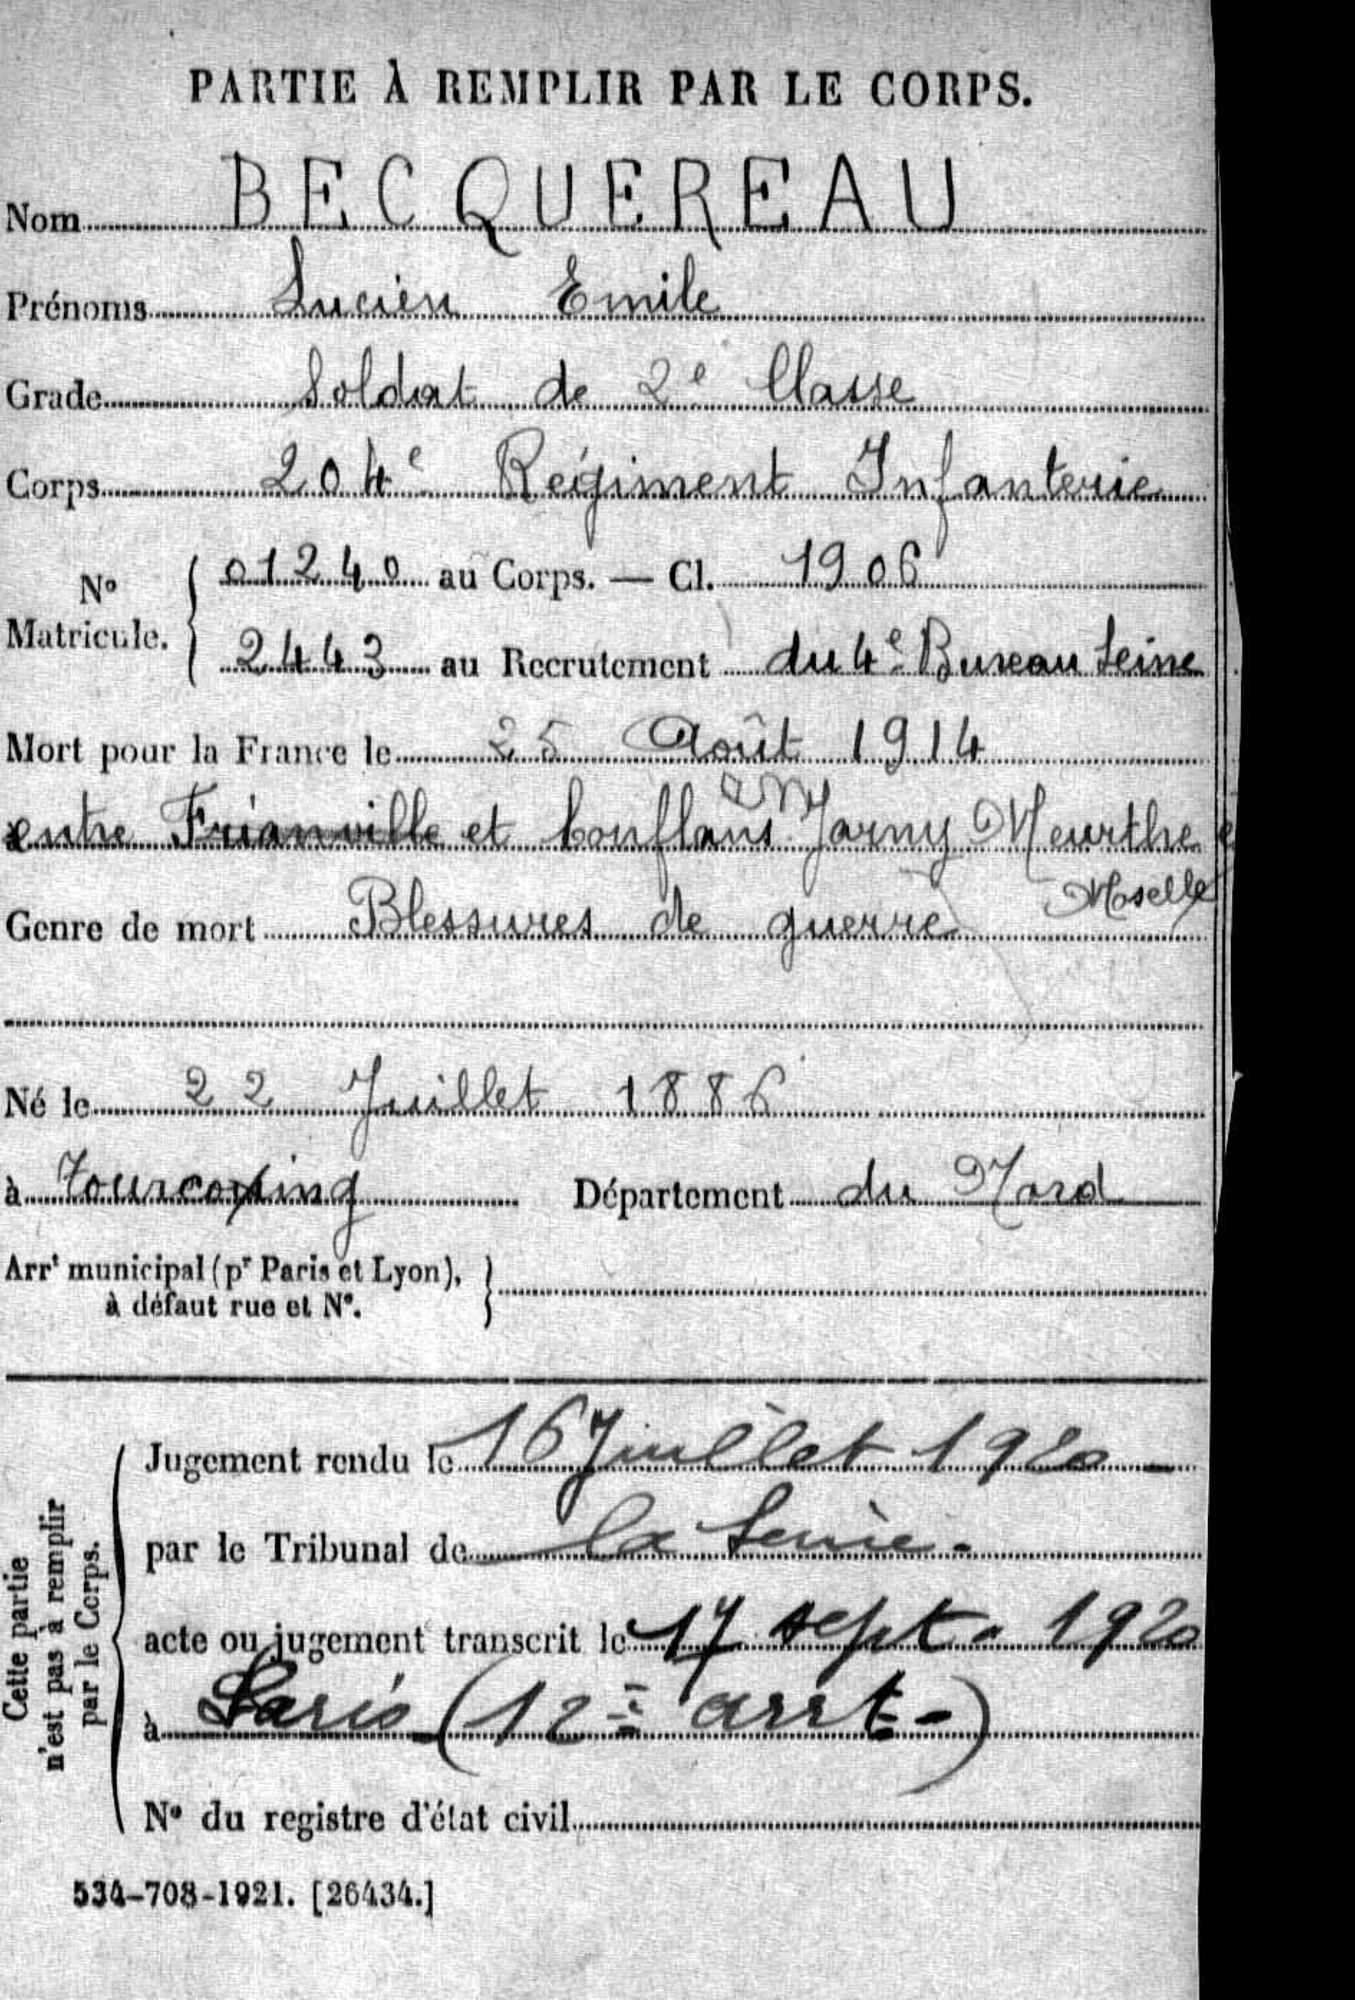 PARTIE À REMPLIR PAR LE CORPS.
Nom BECQUEREAU
Prénoms Lucien Emile
Grade Soldat de 2e Classe
Corps 204e Régiment Infanterie
No Matricule. 01240 au Corps. — Cl. 1906
2443 au Recrutement du 4e Bureau Seine
Mort pour la France le 25 Août 1914
entre Frianville et Conflans Jarny Meurthe e
Moselle
Genre de mort Blessures de guerre
Né le 22 Juillet 1886
à Tourcoing Département du Nord
Arrt municipal (pr Paris et Lyon),
à défaut rue et No.
Cette partie
n'est pas à remplir
par le Corps.
Jugement rendu le 16 Juillet 1920 -
par le Tribunal de la Seine.
acte ou jugement transcrit le 17 sept. 1920
à Paris (12e arrt-)
No du registre d'état civil
534-708-1921. [26434.]